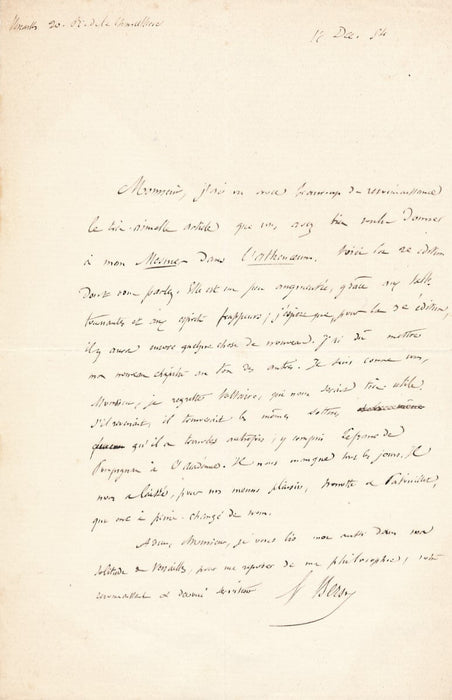 Versailles 20. Bd. de la
15 Dec. 54
Monsieur, j'ai vu avec beaucoup de reconnaissance
le très-aimable article que vous avez bien voulu donner
à mon Mesmer dans l'Athenaeum. Voici la 2e édition
dont vous parlez. Elle est un peu augmentée, grâce aux tables
tournantes et aux esprits frappeurs; j'espère que, pour la 3e édition,
il y aura encore quelque chose de nouveau. J'ai dû mettre
mon nouveau chapitre au ton des autres. Je suis comme vous,
Monsieur, je regrette Voltaire, qui nous serait très utile
s'il revenait, il trouverait les mêmes sottises
qu'il a trouvées autrefois, y compris Lefranc de
Pompignan à l'Académie. Il nous manque tous les jours. Il
nous a laissé, pour nos menus plaisirs, et Patouillet,
qui ont à peine changé de nom.
Adieu, Monsieur, je vous lis dans ma
solitude de Versailles, pour me reposer de ma philosophie, votre
reconnaissant et dévoué serviteur
Bersot